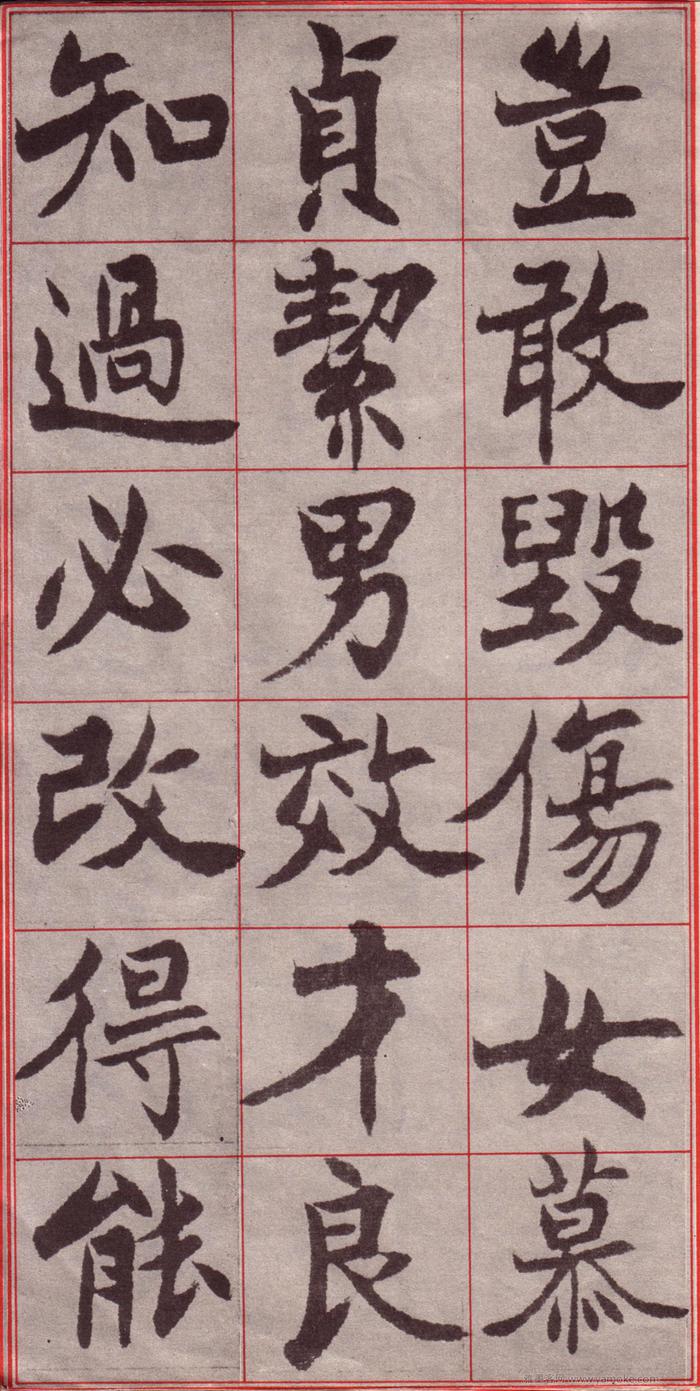 豈敢毀傷女慕
貞絜男效才良
知過必改得能
雅墨客网 www.yamoke.com